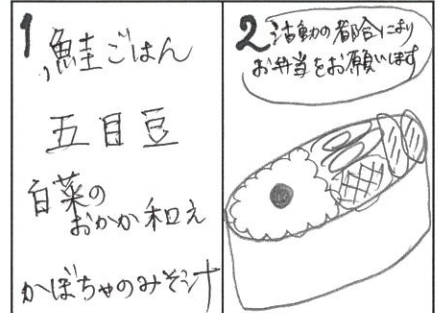 1
鮭ごはん
五目豆
白菜の
おかか和え
かぼちゃのみそ汁
2
活動の都合により
お弁当をお願いします